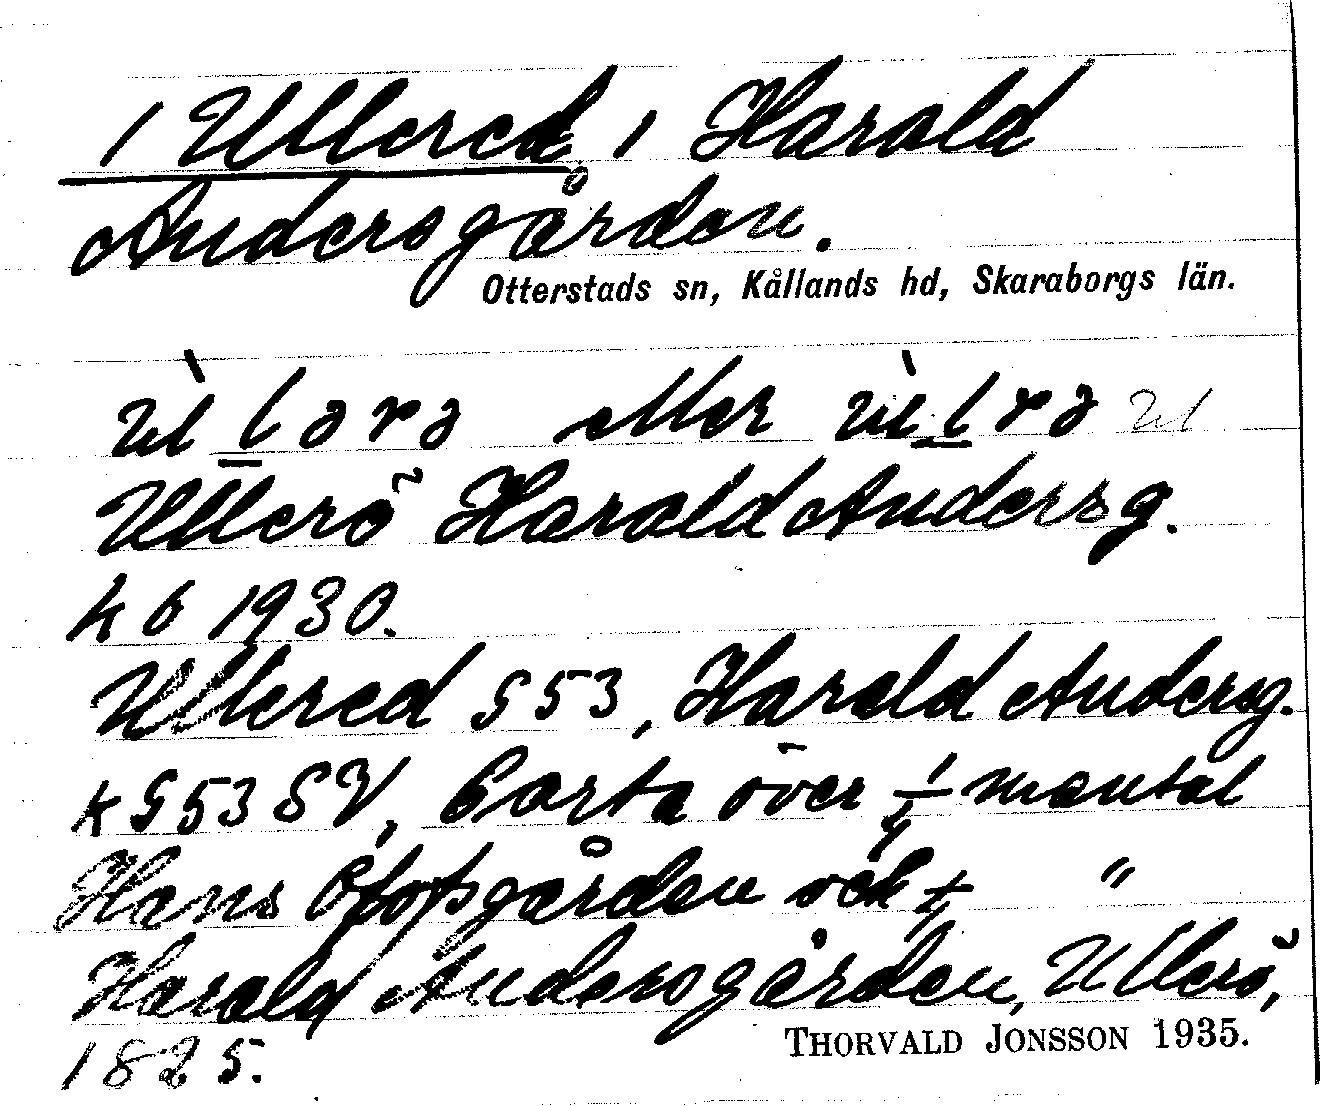 / Ullered, / Harald
Andersgården.
Otterstads sn, Kållands hd, Skaraborgs län.
eller
Ullerö Harald Andersg.
k b 1930.
Ullered G 53, Harald Andersg.
k G 53 SV, Carta över 1/4 mantal
Hans gården och 1/4 "
Harald Andersgården, Ullerö,
1825.
THORVALD JONSSON 1935.